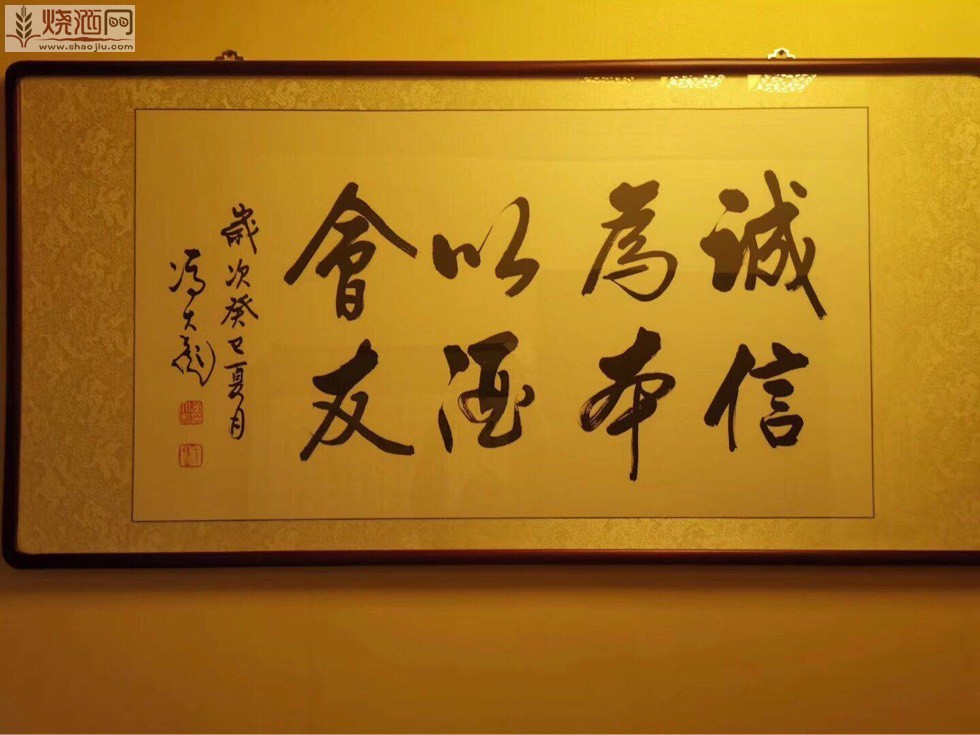 烧酒网
www.shaojiu.com
誠信
為本
以酒
會友
歲次癸巳夏月
馮大彪